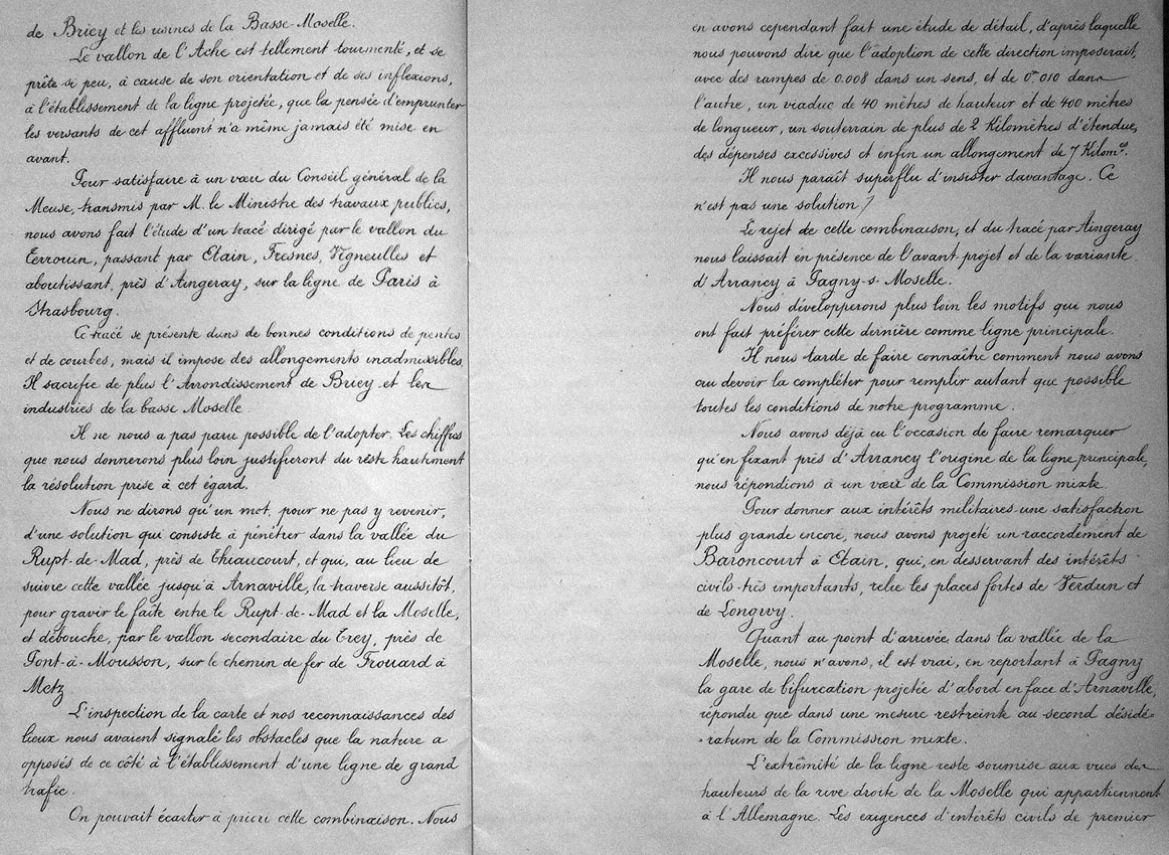 de Briey et les usines de la Basse-Moselle.
Le vallon de l'Ache est tellement tourmenté, et se
prête si peu, à cause de son orientation et de ses inflexions,
à l'établissement de la ligne projetée, que la pensée d'emprunter
les versants de cet affluent n'a même jamais été mise en
avant.
Pour satisfaire à un vœu du Conseil général de la
Meuse, transmis par M. le Ministre des travaux publics,
nous avons fait l'étude d'un tracé dirigé par le vallon du
Perroin, passant par Etain, Fresnes, Vigneulles et
aboutissant, près d'Aingeray, sur la ligne de Paris à
Strasbourg.
Ce tracé se présente dans de bonnes conditions de pentes
et de courbes, mais il impose des allongements inadmissibles.
Il sacrifie de plus l'Arrondissement de Briey et les
industries de la basse Moselle
Il ne nous a pas paru possible de l'adopter. Les chiffres
que nous donnerons plus loin justifieront du reste hautement
la résolution prise à cet égard.
Nous ne dirons qu'un mot, pour ne pas y revenir,
d'une solution qui consiste à pénétrer dans la vallée du
Rupt-de-Mad, près de Thiaucourt, et qui, au lieu de
suivre cette vallée jusqu'à Arnaville, la traverse aussitôt,
pour gravir le faîte entre le Rupt-de-Mad et la Moselle,
et débouche, par le vallon secondaire du Trey, près de
Pont-à-Mousson, sur le chemin de fer de Frouard à
Metz.
L'inspection de la carte et nos reconnaissances des
lieux nous avaient signalé les obstacles que la nature a
opposés de ce côté à l'établissement d'une ligne de grand
trafic.
On pouvait écarter à priori cette combinaison. Nous
en avons cependant fait une étude de détail, d'après laquelle
nous pouvons dire que l'adoption de cette direction imposerait,
avec des rampes de 0.008 dans un sens, et de 0m,010 dans
l'autre, un viaduc de 40 mètres de hauteur et de 400 mètres
de longueur, un souterrain de plus de 2 Kilomètres d'étendue,
des dépenses excessives et enfin un allongement de 7 Kilomes.
Il nous paraît superflu d'insister davantage. Ce
n'est pas une solution /
Le rejet de cette combinaison, et du tracé par Aingeray
nous laissait en présence de l'avant-projet et de la variante
d'Arrancy à Pagny-s-Moselle.
Nous développerons plus loin les motifs qui nous
ont fait préférer cette dernière comme ligne principale.
Il nous tarde de faire connaître comment nous avons
cru devoir la compléter pour remplir autant que possible
toutes les conditions de notre programme.
Nous avons déjà eu l'occasion de faire remarquer
qu'en fixant près d'Arrancy l'origine de la ligne principale,
nous répondions à un vœu de la Commission mixte.
Pour donner aux intérêts militaires une satisfaction
plus grande encore, nous avons projeté un raccordement de
Baroncourt à Etain, qui, en desservant des intérêts
civils très importants, relie les places fortes de Verdun et
de Longwy.
Quant au point d'arrivée dans la vallée de la
Moselle, nous n'avons, il est vrai, en reportant à Pagny
la gare de bifurcation projetée d'abord en face d'Arnaville,
répondu que dans une mesure restreinte au second désidé-
-ratum de la Commission mixte.
L'extrêmité de la ligne reste soumise aux vues des
hauteurs de la rive droite de la Moselle qui appartiennent
à l'Allemagne. Les exigences d'intérêts civils de premier